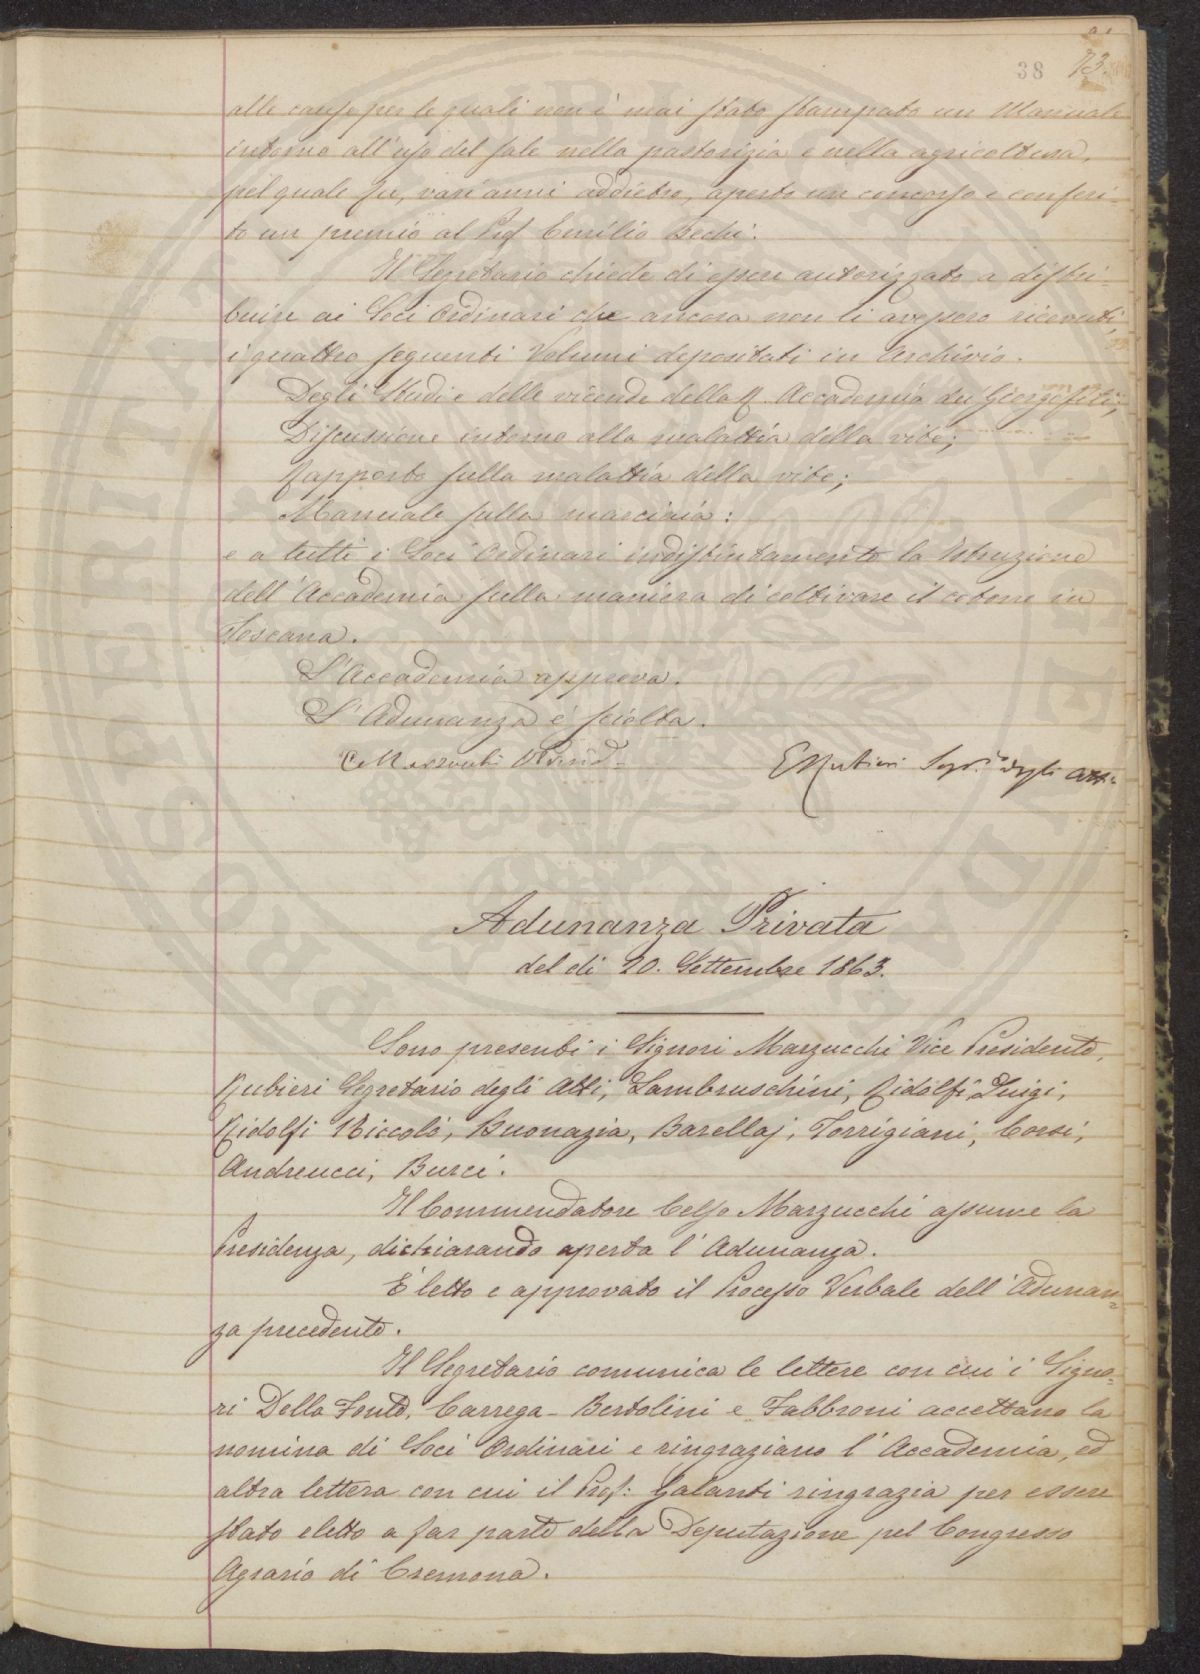 38 73.
alle cause per le quali non è mai stato stampato un Manuale
intorno all'uso del sale nella pastorizia e nella agricoltura,
pel quale fu, vari anni addietro, aperto un concorso e conferi-
to un premio al Prof Emilio Bechi.
Il Segretario chiede di essere autorizzato a distri-
buire ai Soci Ordinari che ancora non li avessero ricevuti,
i quattro seguenti Volumi depositati in Archivio.
Degli Studi e delle vicende della R. Accademia dei Georgofili;
Discussione intorno alla malattia della vite;
Rapporto sulla malattia della vite;
Manuale sulla marciaia:
e a tutti i Soci Ordinari indistintamente la Istruzione
dell'Accademia sulla maniera di coltivare il cotone in
Toscana.
L'Accademia approva.
L'Adunanza è sciolta.
C Marzucchi V Presid. E Rubieri Segr.o degli Atti
Adunanza Privata
del dì 20. Settembre 1863.
Sono presenti i Signori Marzucchi Vice Presidente,
Rubieri Segretario degli Atti, Lambruschini, Ridolfi Luigi,
Ridolfi Niccolò, Buonazia, Barellaj, Torrigiani, Corsi,
Andreucci, Burci.
Il Commendatore Celso Marzucchi assume la
Presidenza, dichiarando aperta l'Adunanza.
È letto e approvato il Processo Verbale dell'Adunan-
za precedente.
Il Segretario comunica le lettere con cui i Signo-
ri Della Fonte, Carrega-Bertolini e Fabbroni accettano la
nomina di Soci Ordinari e ringraziano l'Accademia, ed
altra lettera con cui il Prof: Galanti ringrazia per essere
stato eletto a far parte della Deputazione pel Congresso
Agrario di Cremona.
PROSPERITATI PUBLICAE AUGENDAE